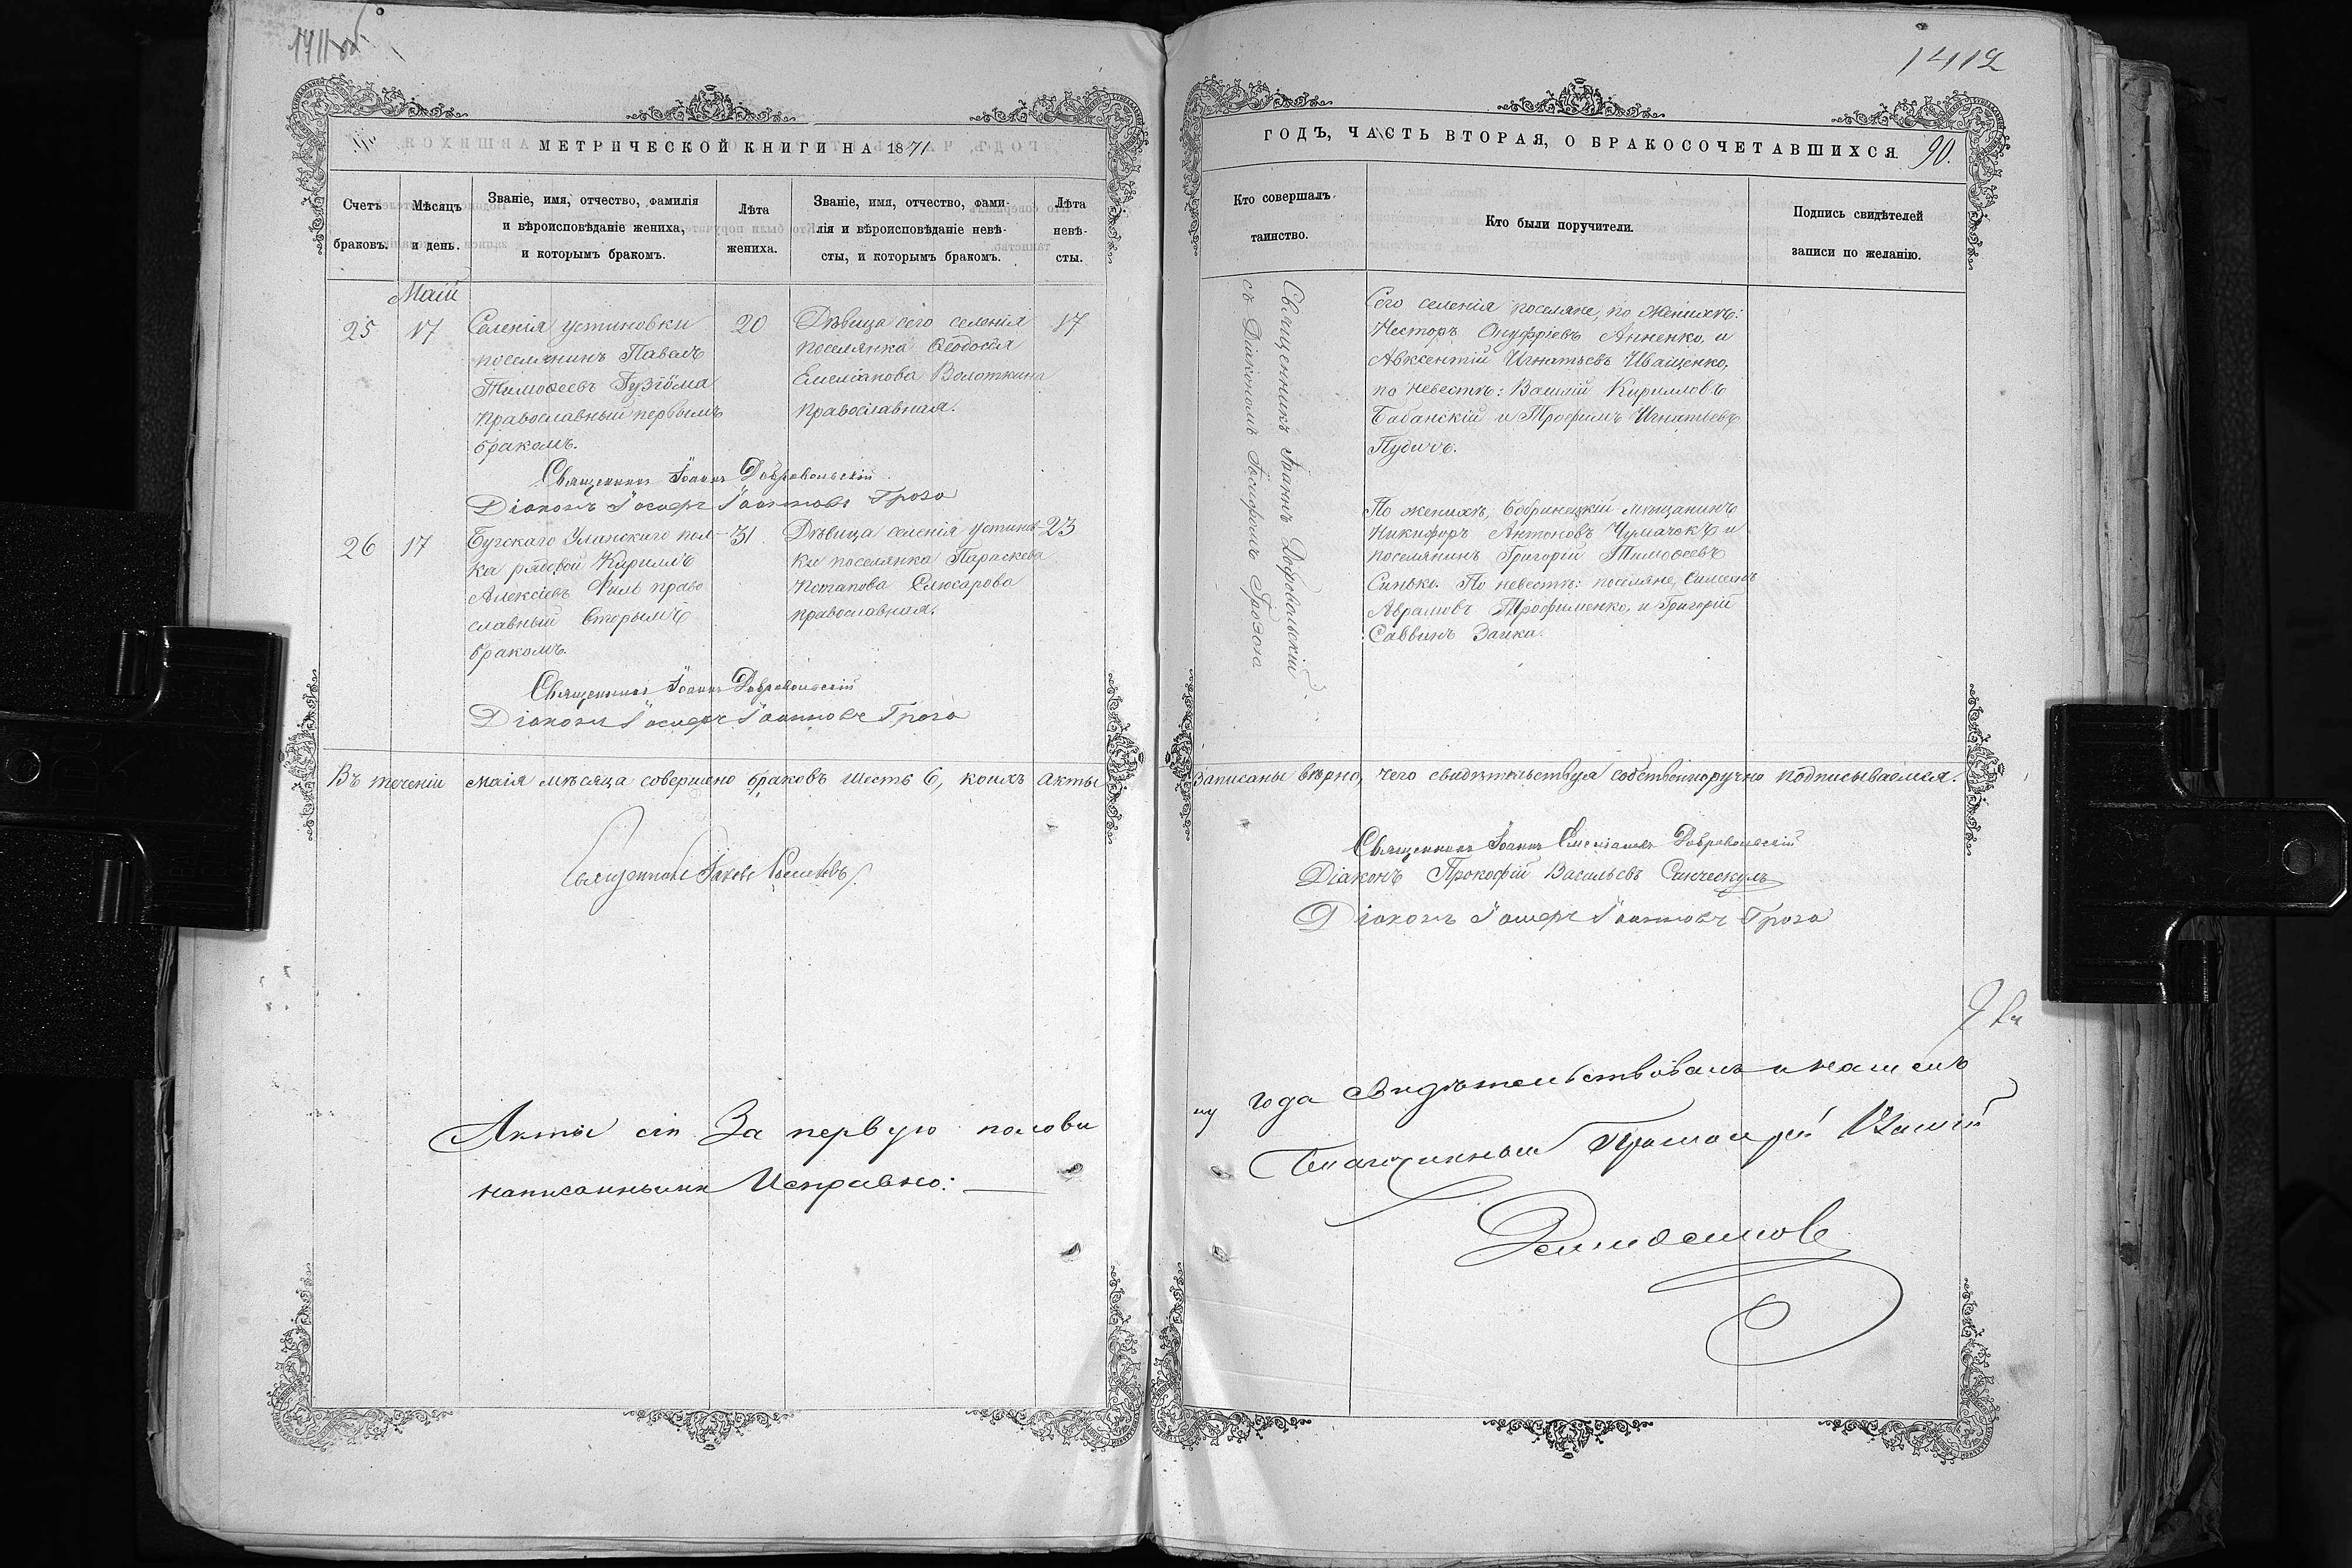 1412
МЕТРИЧЕСКОЙ КНИГИ НА 1871
Счетъ браковъ.
Мѣсяцъ и день.
Званіе, имя, отчество, фамилія
и вѣроисповѣданіе жениха,
и которымъ бракомъ.
Лѣта
жениха.
Званіе, имя, отчество, фами-
лія и вѣроисповѣданіе невѣ-
сты, и которымъ бракомъ.
Лѣта
невѣ-
сты.
Маій
25
17
Селенія Устиновки
поселянинъ Павелъ
Тимоѳеевъ
православный первымъ
бракомъ.
20
Дѣвица сего селенія
поселянка Ѳеодосія
Емеліанова
православная.
17
Священникъ Іоаннъ Добровольскій
Діаконъ Іосифъ Іоанновъ Гроза
26
17
Бугскаго Уланскаго пол-
ка рядовой Кириллъ
Алексіевъ Филь право
славный вторымъ
бракомъ.
31
Дѣвица селенія Устинов-
ки поселянка Параскева
Потапова Слюсарова
православная.
23
Священникъ Іоаннъ Добровольскій
Діаконъ Іосифъ Іоанновъ Гроза
Въ теченіи маія мѣсяца совершено браковъ шесть 6, коихъ акты
Священникъ Іаковъ
Акты сіи За первую полови
написанными Исправно:
ГОДЪ, ЧАСТЬ ВТОРАЯ, О БРАКОСОЧЕТАВШИХСЯ. 90.
Кто совершалъ
таинство.
Кто были поручители.
Подпись свидѣтелей
записи по желанію.
Священникъ Іоаннъ Добровольскій
съ Діакономъ Іосифомъ Грозою
Сего селенія поселяне, по женихѣ:
Несторъ Онуфріевъ Анненко, и
Авксентій Игнатьевъ Иващенко,
по невестѣ: Василій Кирилловъ
Бабанскій и Трофимъ Игнатьевъ
По женихѣ, бобринецкій мѣщанинъ
Никифоръ Антоновъ Чумачокъ и
поселянинъ Григорій Тимоѳеевъ
Синько. По невестѣ: поселяне, Симеонъ
Аврамовъ Трофименко, и Григорій
Саввинъ Заика.
Записаны вѣрно, чего свидѣтельствуя собственноручно подписываемся.
Священникъ Іоаннъ Емеліановъ Добровольскій
Діаконъ Прокофій Васильевъ
Діаконъ Іосифъ Іоанновъ Гроза
ну года Свидѣтельствовалъ и нашелъ
Благочинный Протоіерей